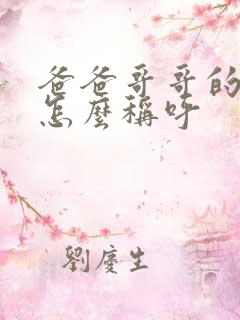 爸爸哥哥的
怎麼稱呼
劉慶生